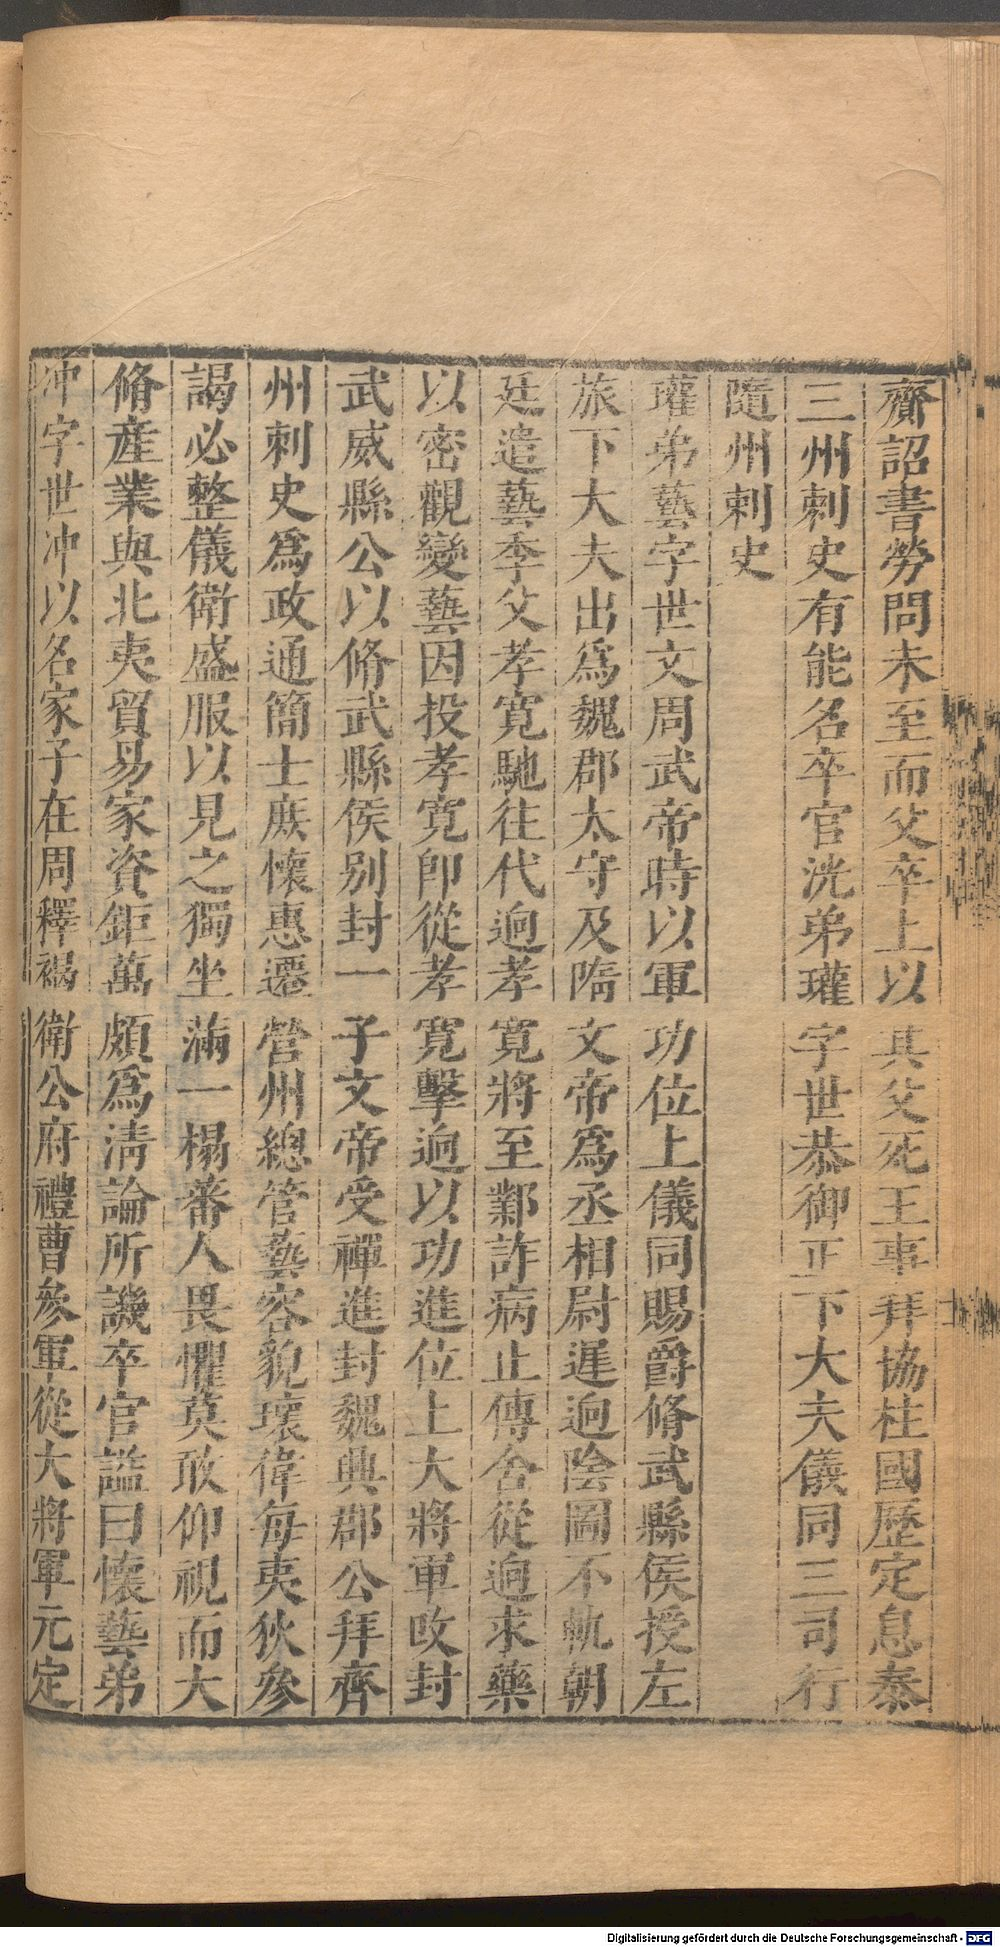 齎詔書勞問未至而父卒上以其父死王事拜協柱國歷定息泰
三州刺史有能名卒官洸弟瓘字世恭御正下大夫儀同三司行
隨州刺史
瓘弟藝字世文周武帝時以軍功位上儀同賜爵脩武縣侯授左
旅下大夫出爲魏郡太守及隋文帝爲丞相尉遲迥陰圖不軌朝
廷遣藝季父孝寬馳往代迥孝寬將至鄴詐病止傳舍從迥求藥
以密觀變藝因投孝寬卽從孝寬擊迥以功進位上大將軍改封
武威縣公以脩武縣侯別封一子文帝受禪進封魏興郡公拜齊
州刺史爲政通簡士庶懷惠遷營州總管藝容貌瓌偉每夷狄參
謁必整儀衛盛服以見之獨坐滿一榻蕃人畏懼莫敢仰視而大
脩產業與北夷貿易家資鉅萬頗爲清論所譏卒官謚曰懷藝弟
冲字世冲以名家子在周釋褐衛公府禮曹參軍從大將軍元定
Digitalisierung gefördert durch die Deutsche Forschungsgemeinschaft - DFG